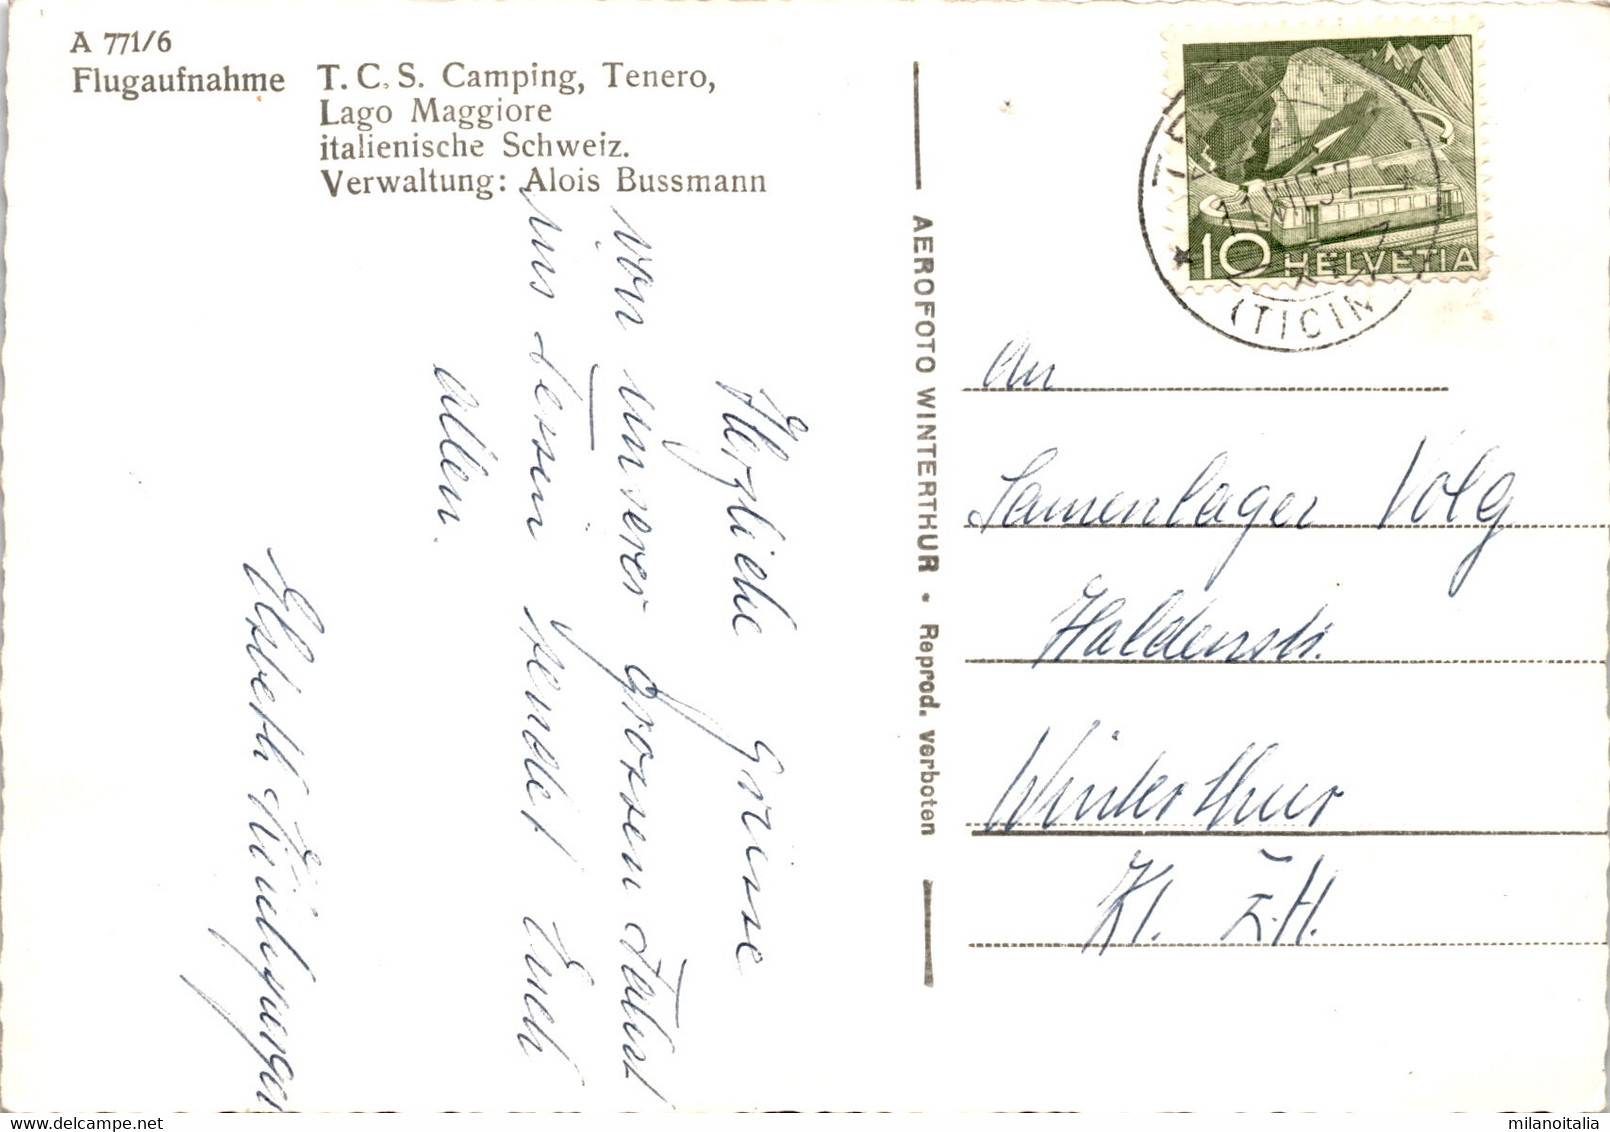 A 771/6
Flugaufnahme T. C. S. Camping, Tenero,
Lago Maggiore
italienische Schweiz.
Verwaltung: Alois Bussmann
Herzliche Grüsse
von unserer Grossen Fahrt
ins Tessin sendet Euch
allen.
Elsbeth
AEROFOTO WINTERTHUR • Reprod. verboten
10 HELVETIA
VII.57
(TICIN
An
Samenlager Volg
Haldenstr.
Winterthur
Kt. Z.H.
milanoitalia